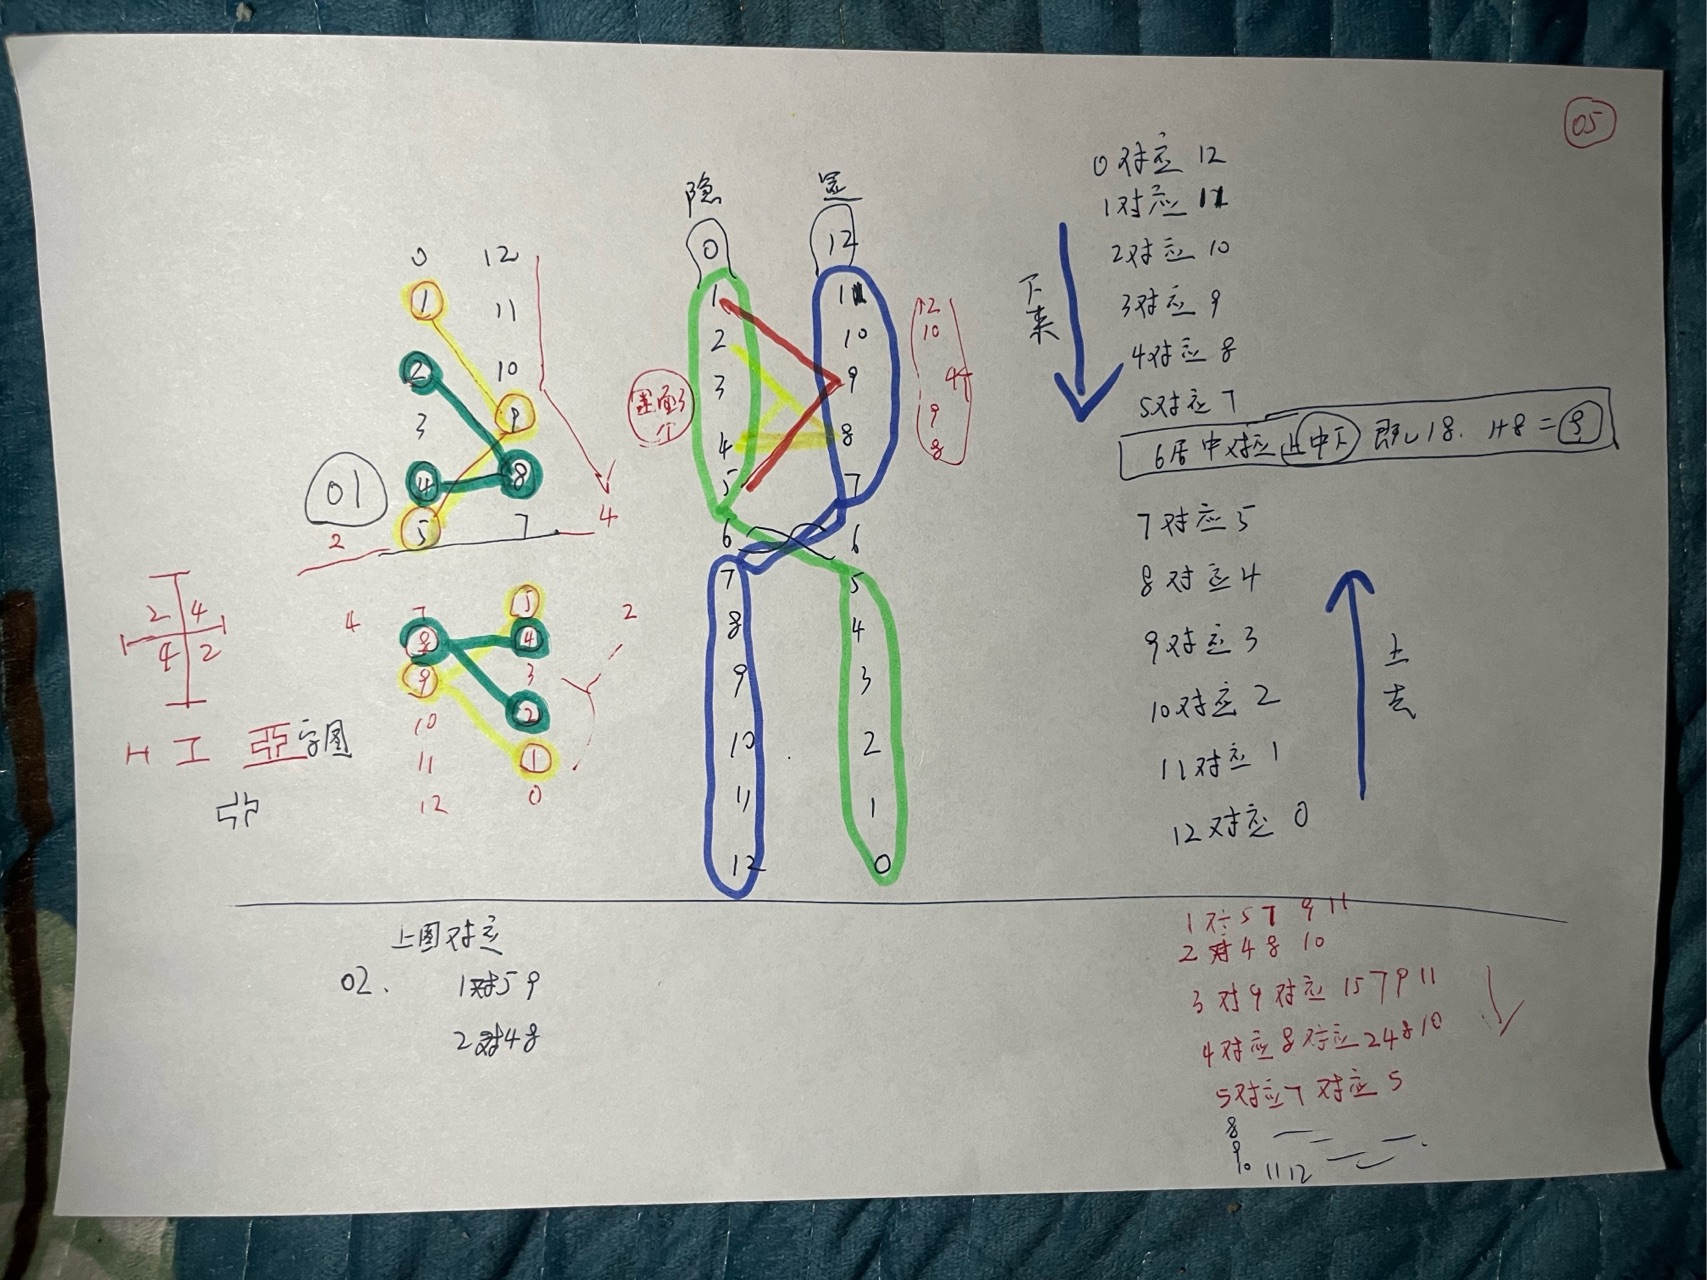 05
隐 显
0 12
1 11
2 10
3 9
4 8
5 7
6 6
7 5
8 4
9 3
10 2
11 1
12 0
12
10
4个
9
8
0 12
1 11
2 10
3 9
4 8
5 7
01
2
4
4
2
7 5
8 4
9 3
10 2
11 1
12 0
2 4
4 2
H 工 亞字图
0对应12
1对应11
2对应10
3对应9
4对应8
5对应7
6居中对应上中下 即 18. 1+8=9
7对应5
8对应4
9对应3
10对应2
11对应1
12对应0
下来
上去
上图对应
02. 1对59
2对48
1对57 9 11
2对4 8 10
3对9对应1579 11
4对应8对应24810
5对应7对应5
8
9
10 11 12